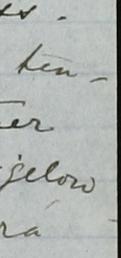 ss.
ten-
ter
igelow
ra